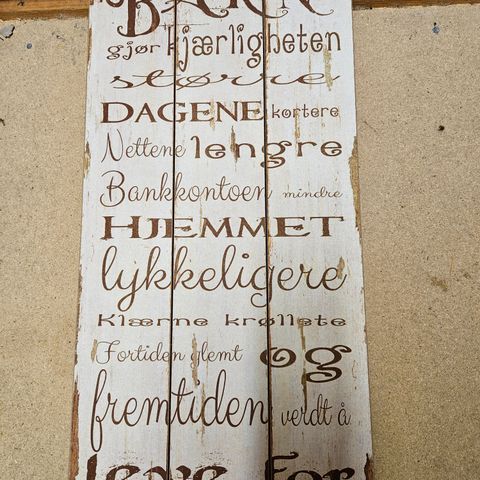 BARN
gjør kjærligheten
større
DAGENE kortere
Nettene lengre
Bankkontoen mindre
HJEMMET
lykkeligere
Klærne krøllete
Fortiden glemt og
fremtiden verdt å
leve for